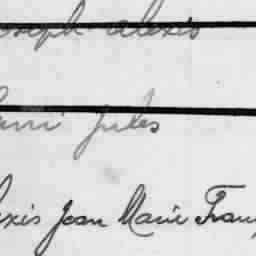 Joseph Alexis
Henri Jules
Alexis Jean Marie Franç